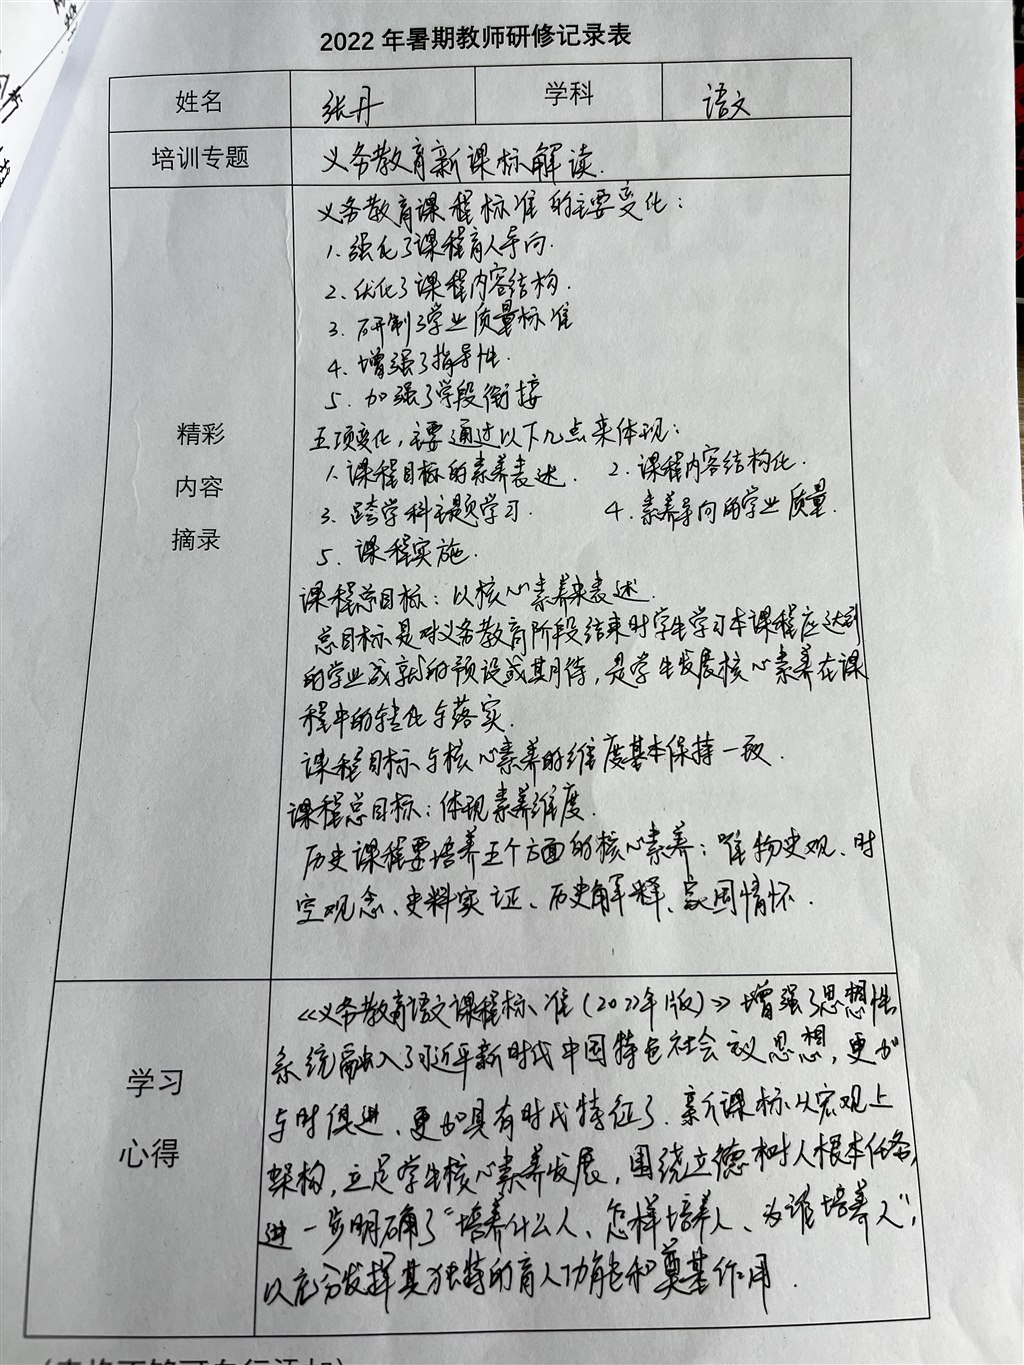 2022 年暑期教师研修记录表
姓名 张丹 学科 语文
培训专题 义务教育新课标解读.
精彩
内容
摘录
义务教育课程标准的主要变化:
1. 强化了课程育人导向.
2、优化了课程内容结构.
3. 研制了学业质量标准
4. 增强了指导性.
5. 加强了学段衔接
五项变化,主要通过以下几点来体现:
1. 课程目标的素养表述. 2. 课程内容结构化.
3. 跨学科主题学习. 4. 素养导向的学业质量.
5. 课程实施.
课程总目标:以核心素养来表述.
总目标是对义务教育阶段结束时学生学习本课程应达到
的学业成就的预设或期待,是学生发展核心素养在课
程中的转化与落实.
课程目标与核心素养的维度基本保持一致.
课程总目标:体现素养维度.
历史课程要培养五个方面的核心素养:唯物史观、时
空观念、史料实证、历史解释、家国情怀.
学习
心得
《义务教育语文课程标准(2022年版)》增强了思想性
系统融入了习近平新时代中国特色社会主义思想,更加
与时俱进、更加具有时代特征了.新课标从宏观上
架构,立足学生核心素养发展,围绕立德树人根本任务,
进一步明确了“培养什么人、怎样培养人、为谁培养人”,
以充分发挥其独特的育人功能和奠基作用.